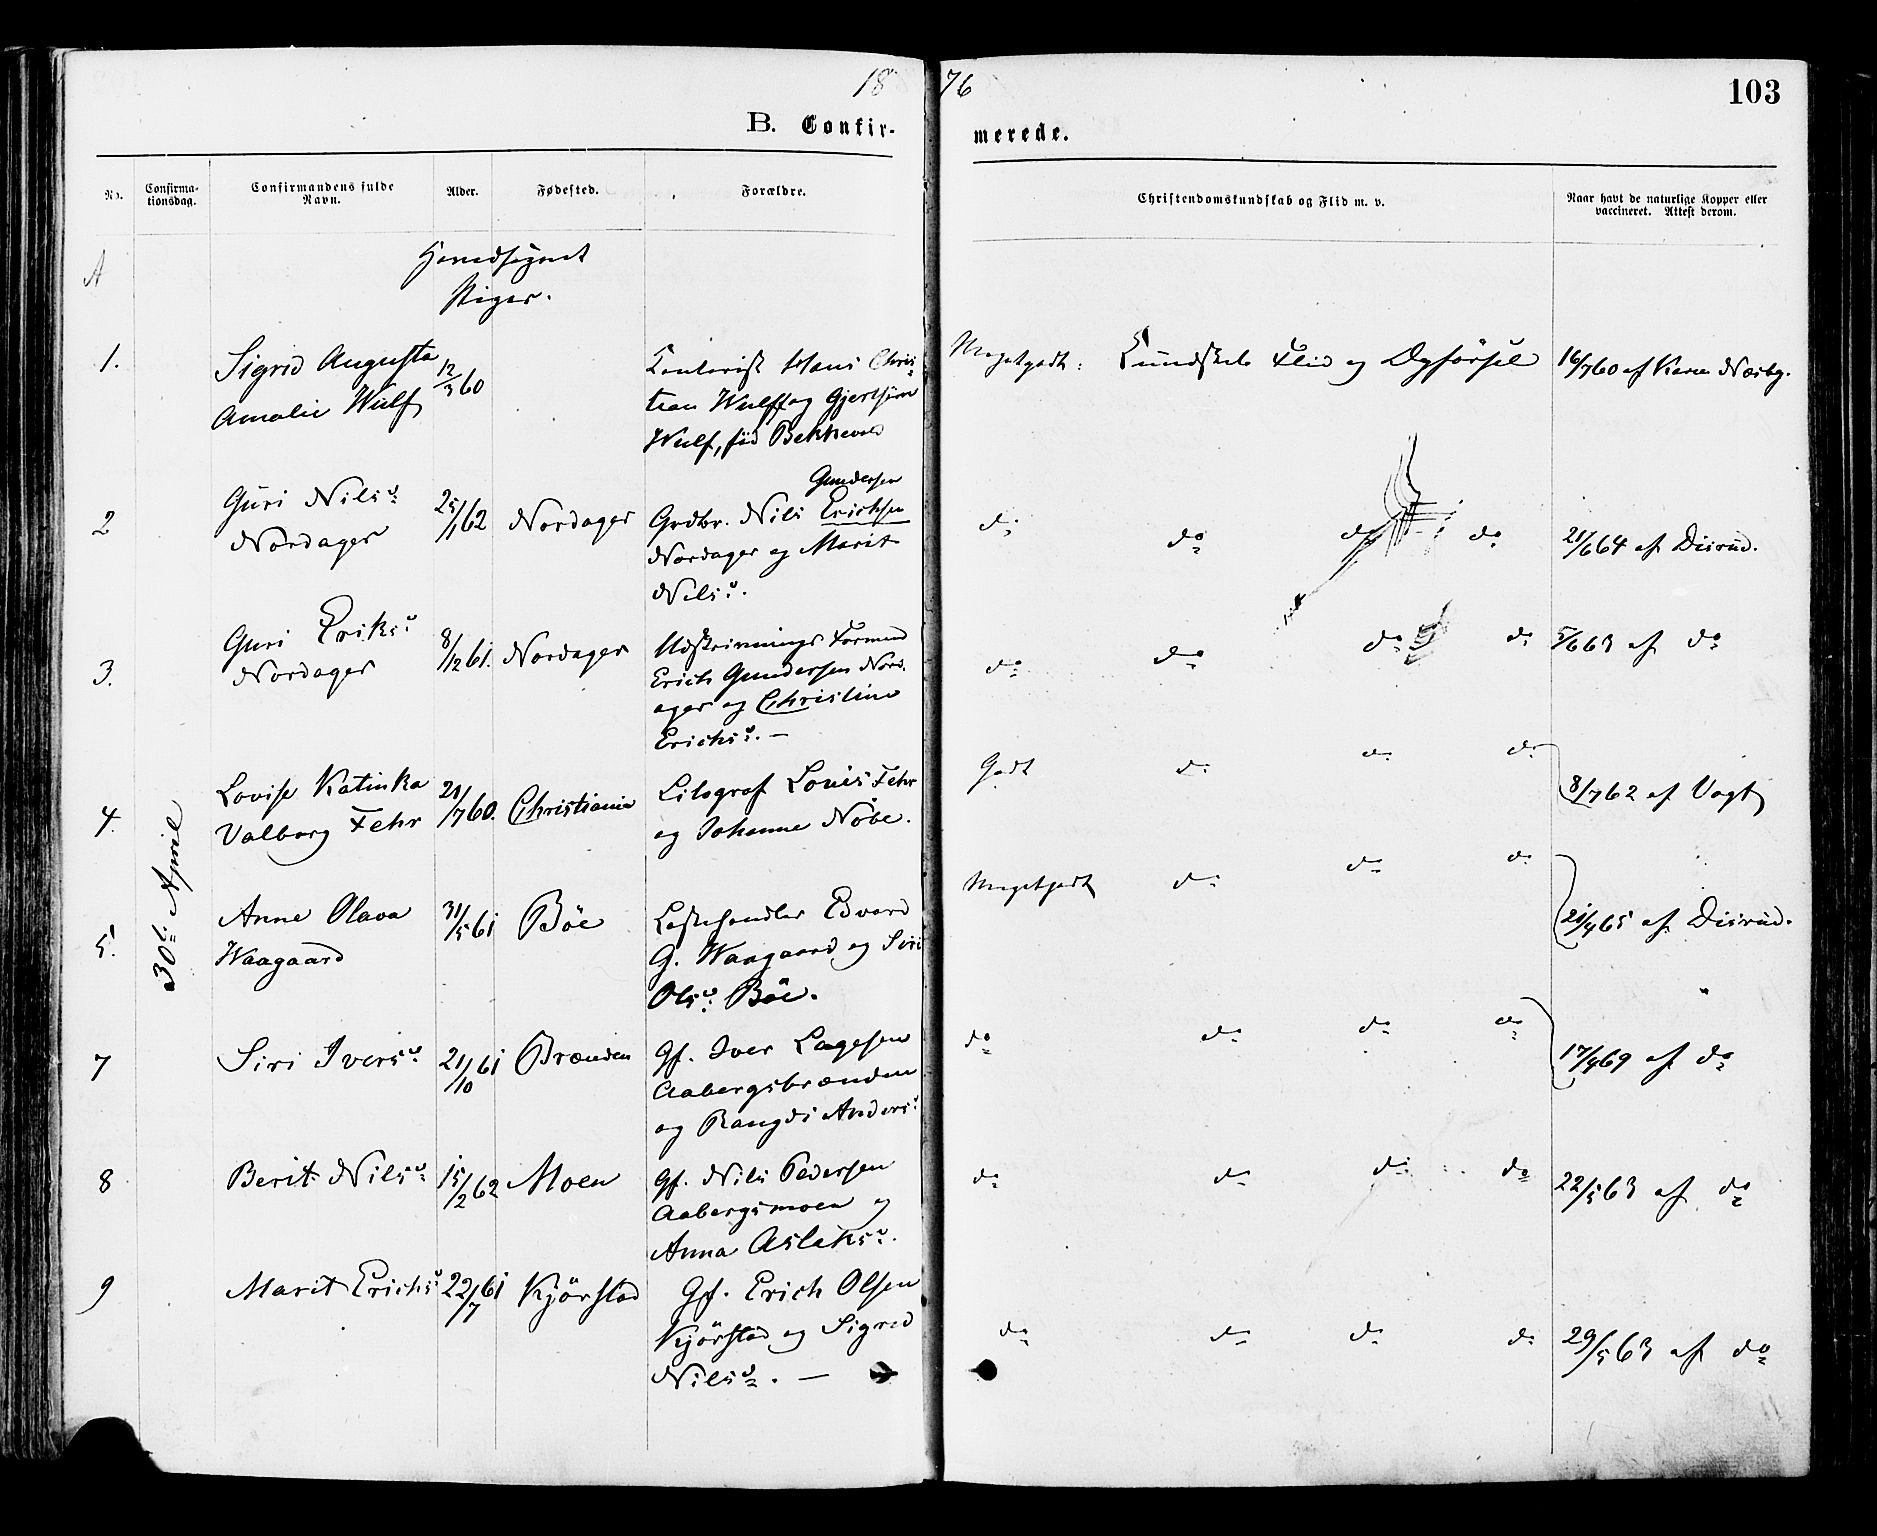 1876
103
B. Confirmerede.
No.
Confirma-
tionsdag.
Confirmandens fulde
Navn.
Alder.
Fødested.
Forældre.
Christendomskundskab og Flid m. v.
Naar havt de naturlige Kopper eller
vaccineret. Attest derom.
A
Hovedsognet
Piger.
30te April
1.
Sigrid Augusta
Amalie Wulf
12/3 60
Contorist Hans Chris-
tian Wulff og
Wulf, fød Bekkevold
Megetgodt. Kundskab Flid og Opførsel
16/7 60 af Karen Næsby.
2
Guri Nilsd.
Nordager
25/1 62
Nordager
Gundersen
Grdbr. Nils Erichsen
Nordager og Marit
Nilsd.
do do do do
21/6 64 af Disrud.
3.
Guri Eriksd.
Nordager
8/12 61.
Nordager
Udskrivnings Formand
Erich Gundersen Nord-
ager og Christine
Erichsd. —
do do do do
5/6 63 af do
4.
Lovise Katinka
Valborg Fehr
21/7 60.
Christiania
Litograf Louis Fehr
og Johanne Nøbe.
Godt do do do
8/7 62 af Vogt
5.
Anne Olava
Waagaard
31/5 61
Böe
Edvard
G. Waagaard og Siri
Olsd. Böe.
Megetgodt do do do
21/4 65 af Disrud.
7
Siri Iversd.
21/10 61
Brænden
Gf. Iver Lagesen
Aabergsbrænden
og Rangdi Andersd.
do do do do
17/4 69 af do
8
Berit Nilsd.
15/2 62
Moen
Gf. Nils Pedersen
Aabergsmoen og
Anna Aslaksd.
do do do do
22/5 63 af do
9
Marit Erichsd.
22/7 61
Kjörstad
Gf. Erich Olsen
Kjörstad og Sigrid
Nilsd. —
do do do do
29/5 63 af do